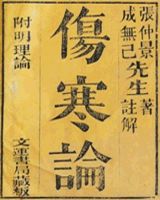 張仲景先生著
成無己先生註解
傷寒論
附明理論
文運書局藏板